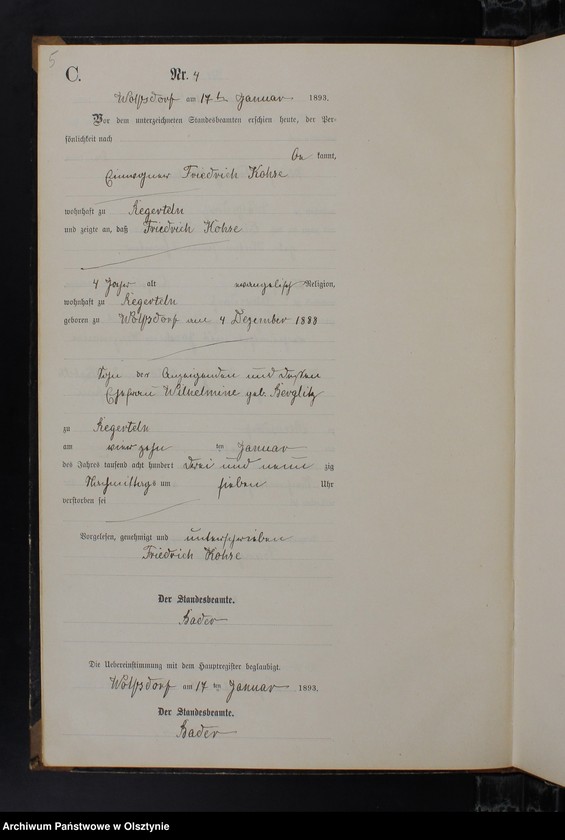 5
C. Nr. 4
Wolfsdorf am 17ten Januar 1893.
Vor dem unterzeichneten Standesbeamten erschien heute, der Per-
sönlichkeit nach
be kannt,
Einwohner Friedrich Kohse
wohnhaft zu Regerteln
und zeigte an, daß Friedrich Kohse
4 Jahre alt evangelisch Religion,
wohnhaft zu Regerteln
geboren zu Wolfsdorf am 4 Dezember 1888
Sohn des Anzeigenden und dessen
Ehefrau Wilhelmine geb. Berglitz
zu Regerteln
am vierzehn ten Januar
des Jahres tausend acht hundert drei und neun zig
Nachmittags um sieben Uhr
verstorben sei
Vorgelesen, genehmigt und unterschrieben
Friedrich Kohse
Der Standesbeamte.
Bader
Die Uebereinstimmung mit dem Hauptregister beglaubigt.
Wolfsdorf am 17 ten Januar 1893.
Der Standesbeamte.
Bader
Archiwum Państwowe w Olsztynie